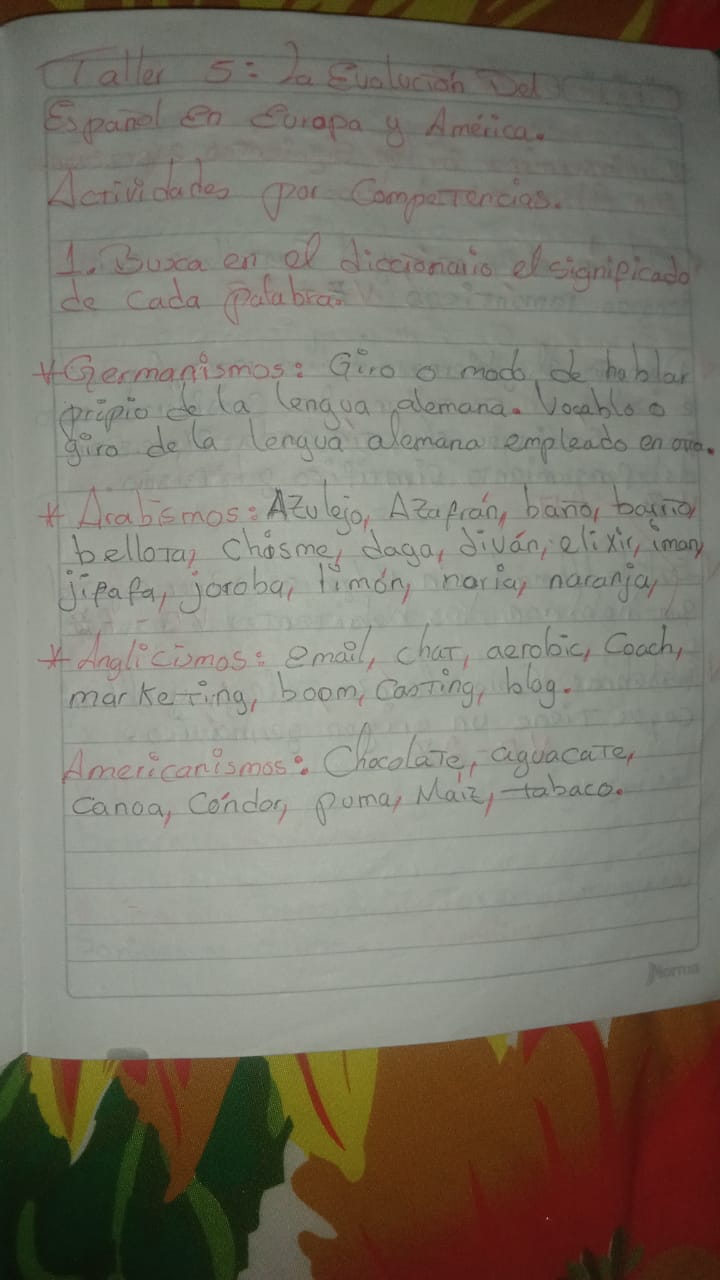 Taller 5: La Evolución Del
Español en Europa y América.
Actividades por Competencias.
1. Busca en el diccionario el significado
de cada palabra.
* Germanismos: Giro o modo de hablar
propio de la lengua alemana. Vocablo o
giro de la lengua alemana empleado en otra.
* Arabismos: Azulejo, Azafrán, baño, barrio,
bellota, chisme, daga, diván, elixir, iman,
jirafa, joroba, limón, noria, naranja,
* Anglicismos: email, chat, aerobic, Coach,
marketing, boom, Casting, blog.
Americanismos: Chocolate, aguacate,
Canoa, Cóndor, puma, Maíz, tabaco.
Norma